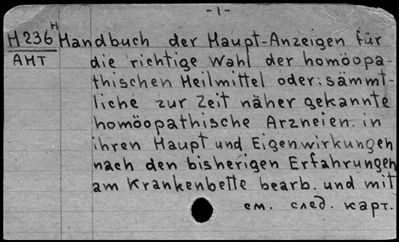 -1-
H
H236 Handbuch der Haupt-Anzeigen für
AHT die richtige Wahl der homöopa-
thischen Heilmittel oder: sämmt-
liche zur Zeit näher gekannte
homöopathische Arzneien in
ihren Haupt und Eigenwirkungen
nach den bisherigen Erfahrungen
am Krankenbette bearb. und mit
см. след. карт.